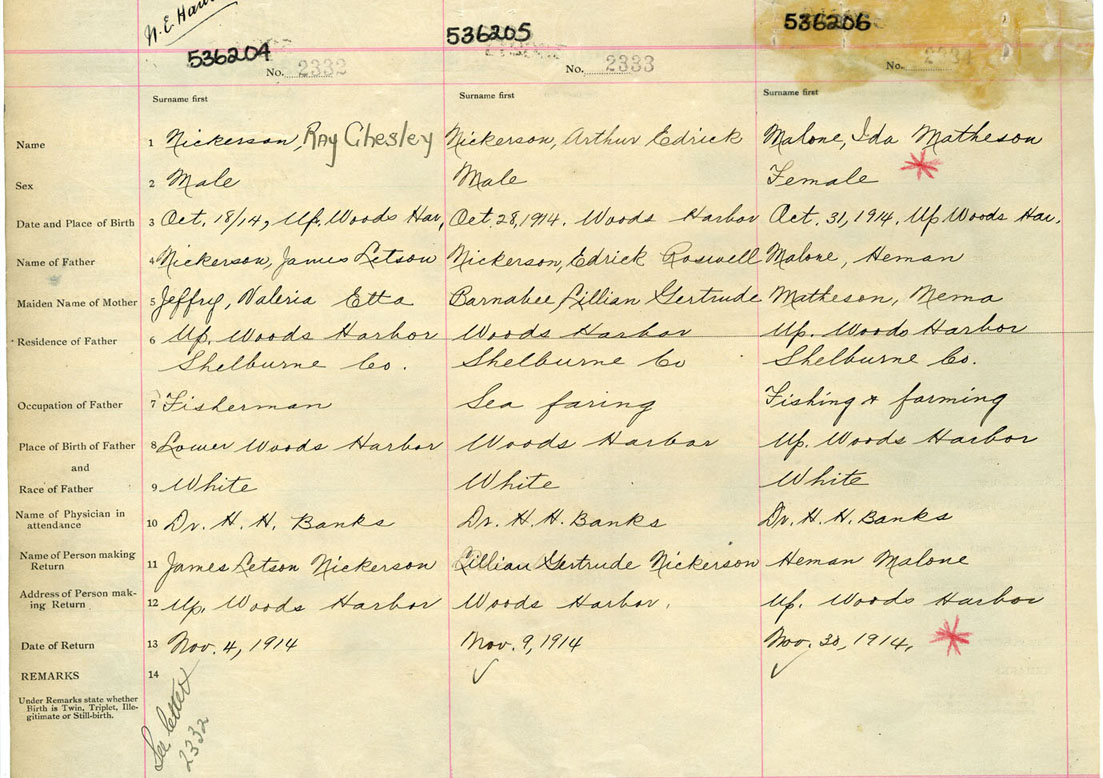 N. E.
536204 536205 536206
No. 2332 No. 2333 No.
Surname first Surname first Surname first
Name 1 Nickerson, Ray Chesley Nickerson, Arthur Edrick Malone, Ida Matheson
Sex 2 Male Male Female
Date and Place of Birth 3 Oct. 18/14, Up. Woods Har, Oct. 28, 1914. Woods Harbor Oct. 31, 1914, Up Woods Har.
Name of Father 4 Nickerson, James Letson Nickerson, Edrick Roswell Malone, Heman
Maiden Name of Mother 5 Jeffry, Valeria Etta Barnabee, Lillian Gertrude Matheson, Nema
Residence of Father 6 Up. Woods Harbor Woods Harbor Up. Woods Harbor
Shelburne Co. Shelburne Co Shelburne Co.
Occupation of Father 7 Fisherman Sea faring Fishing & farming
Place of Birth of Father 8 Lower Woods Harbor Woods Harbor Up. Woods Harbor
and
Race of Father 9 White White White
Name of Physician in
attendance 10 Dr. H. H. Banks Dr. H. H. Banks Dr. H. H. Banks
Name of Person making
Return 11 James Letson Nickerson Lillian Gertrude Nickerson Heman Malone
Address of Person mak-
ing Return 12 Up. Woods Harbor Woods Harbor. Up. Woods Harbor
Date of Return 13 Nov. 4, 1914 Nov. 9, 1914 Nov. 30, 1914,
REMARKS 14
Under Remarks state whether
Birth is Twin, Triplet, Ille-
gitimate or Still-birth.
See letter
2332